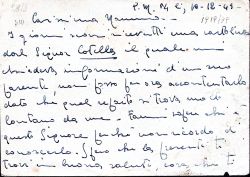 P.M. N° 6, 10-12-41
Carissima Mamma. -
I giorni scorsi ricevetti una cartolina
dal Signor Cotella il quale mi
chiedeva informazioni d'un suo
parente. non posso accontentarlo
dato che quel reparto si trova molto
lontano da me -
questo Signore perché non ricordo di
conoscerlo. Spero che la presente ti
trovi in buona salute, cosa che ti